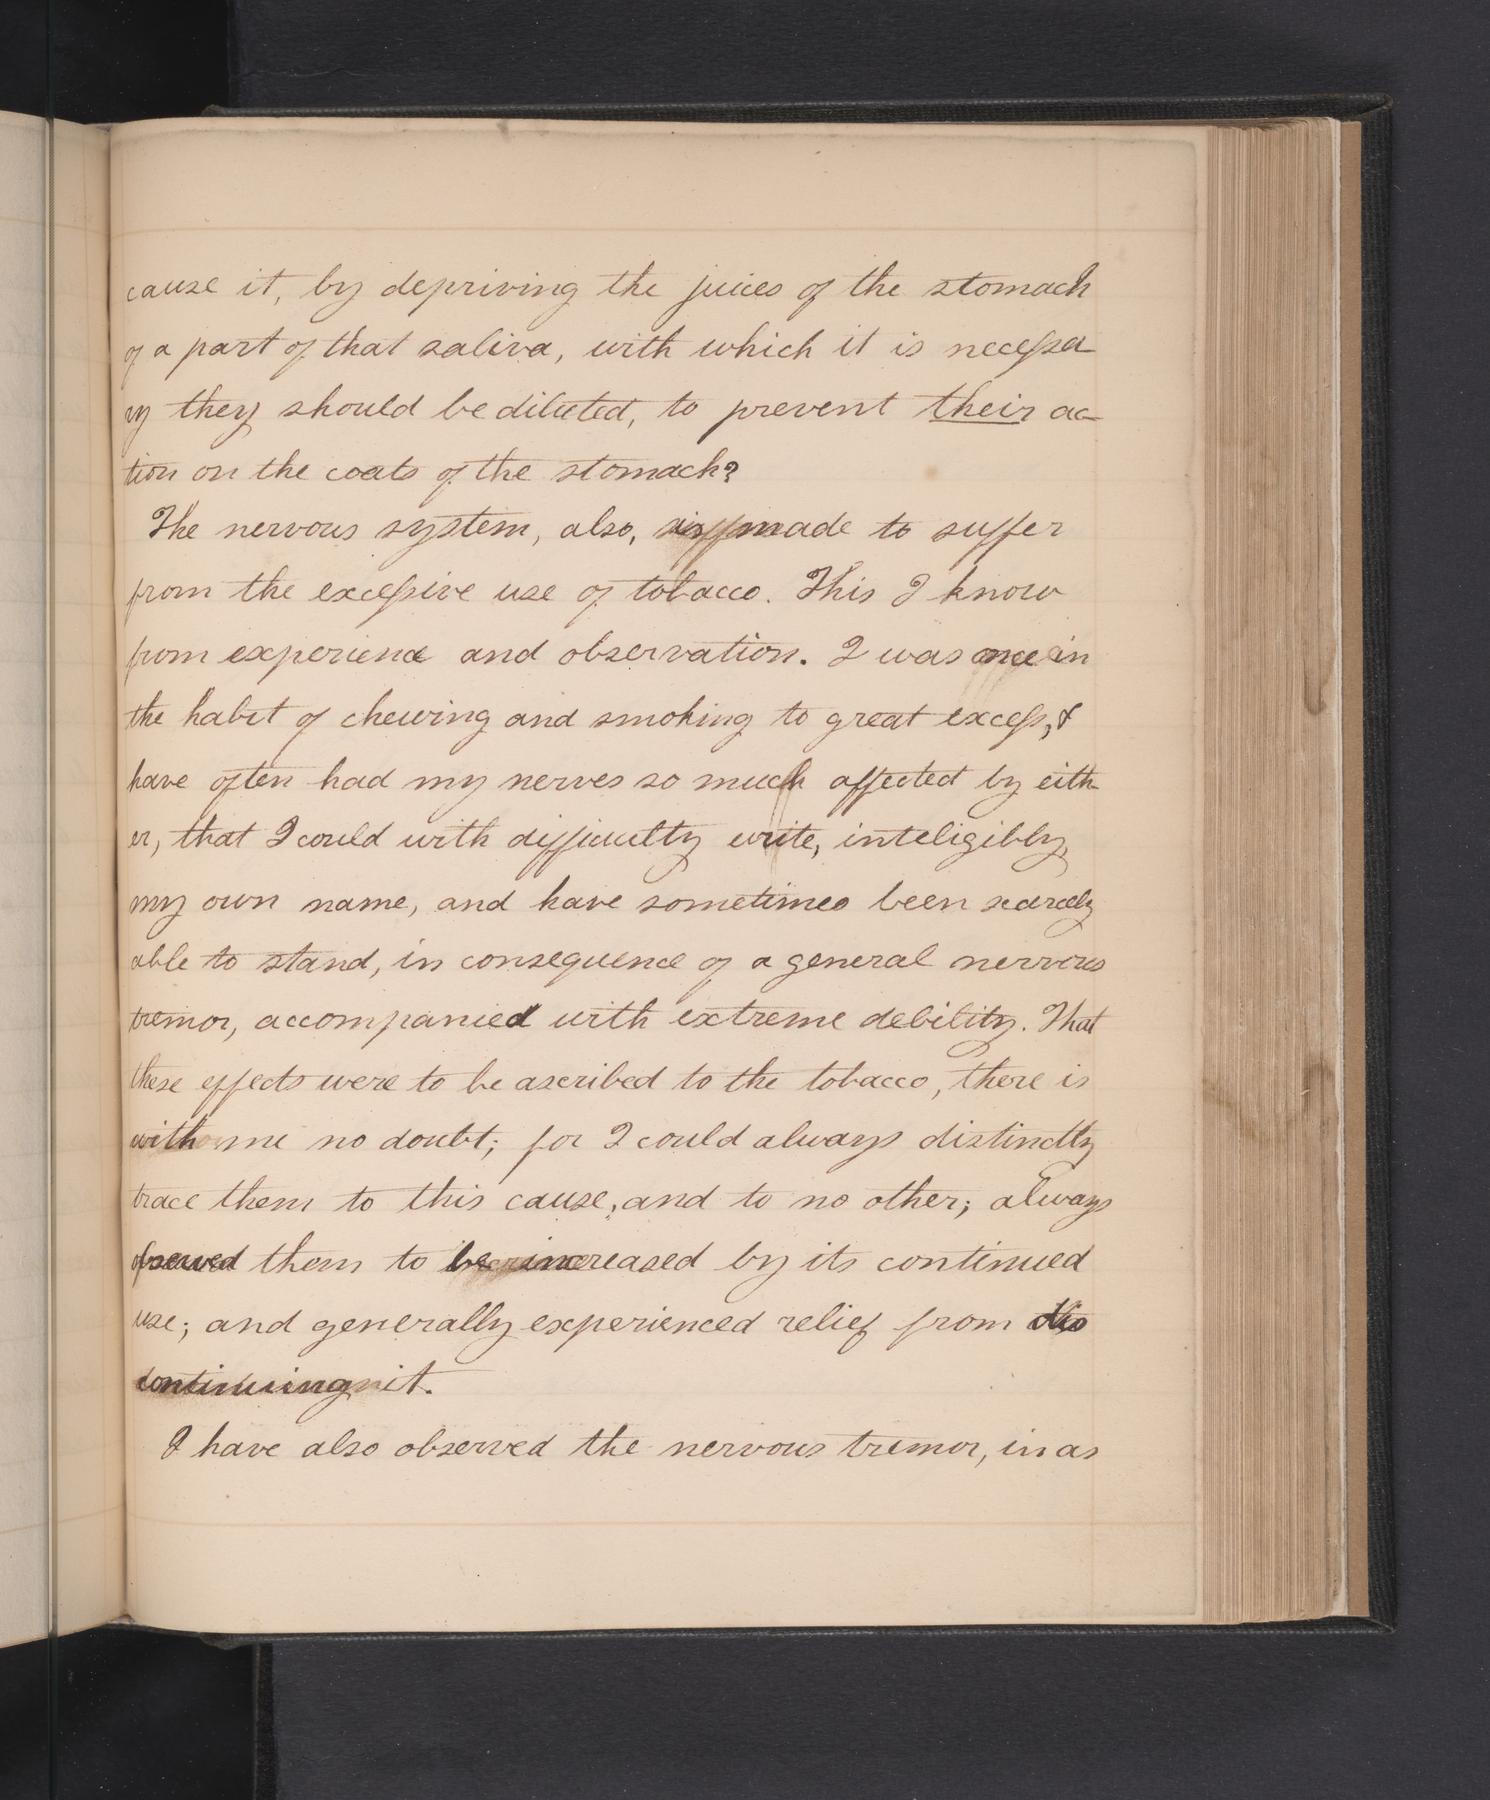 cause it, by depriving the juices of the stomach
of a part of that saliva, with which it is necessa
ry they should be diluted, to prevent their ac-
tion on the coats of the stomach?
The nervous system, also, is made to suffer
from the excessive use of tobacco. This I know
from experience and observation. I was once in
the habit of chewing and smoking to great excess, &
have often had my nerves so much affected by eith-
er, that I could with difficulty write, inteligibly,
my own name, and have sometimes been scarcely
able to stand, in consequence of a general nervous
tremor, accompanied with extreme debility. That
these effects were to be ascribed to the tobacco, there is
with me no doubt; for I could always distinctly
trace them to this cause, and to no other; always
observed them to be increased by its continued
use; and generally experienced relief from dis
continuing it.
I have also observed the nervous tremor, in as